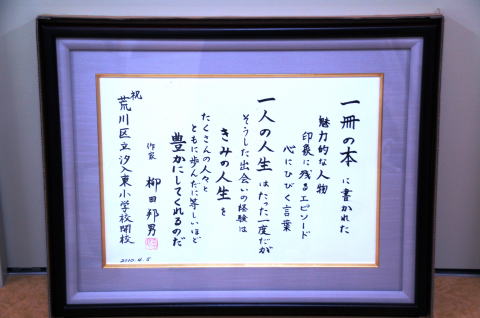 一冊の本に書かれた
魅力的な人物
印象に残るエピソード
心にひびく言葉
一人の人生はたった一度だが
そうした出会いの経験は
きみの人生を
たくさんの人々と
ともに歩んだに等しいほど
豊かにしてくれるのだ
作家 柳田邦男
祝
荒川区立汐入東小学校開校
2010.4.5